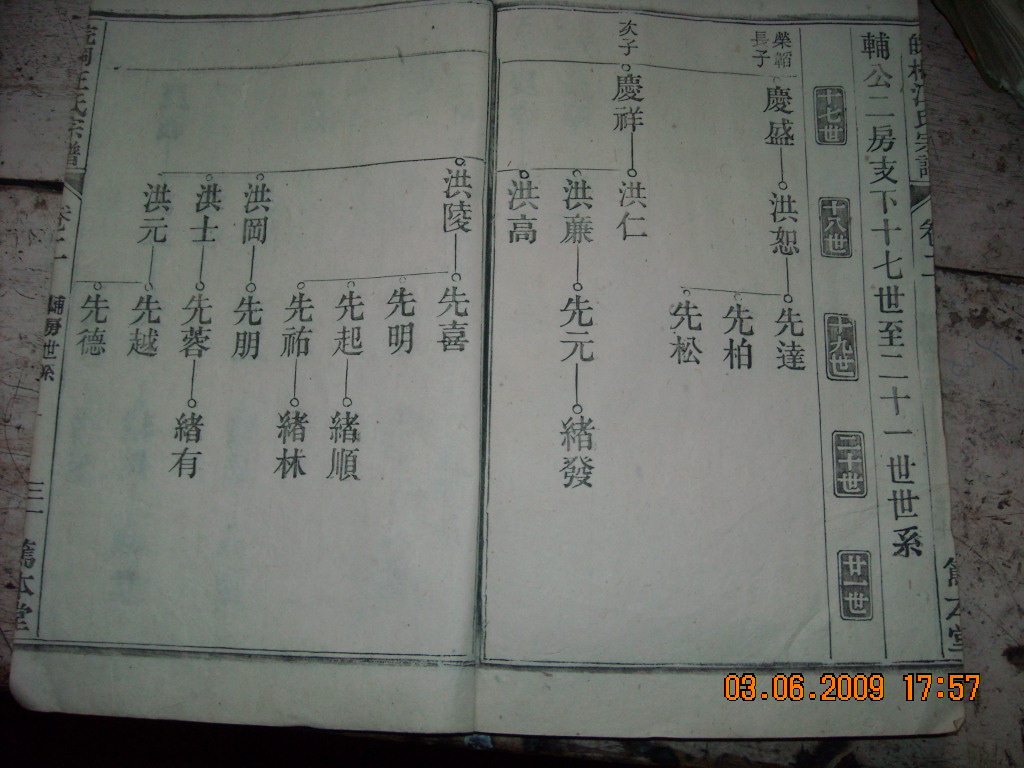 輔公二房支下十七世至二十一世世系
十七世
十八世
十九世
二十世
廿一世
長子
慶盛
洪恕
先達
先柏
先松
次子
慶祥
洪仁
洪廉
先元
緒發
洪高
洪陵
先喜
先明
先起
緒順
先祐
緒林
洪岡
先朋
洪士
先蓉
緒有
洪元
先越
先德
輔房世系
篤本堂
03.06.2009 17:57